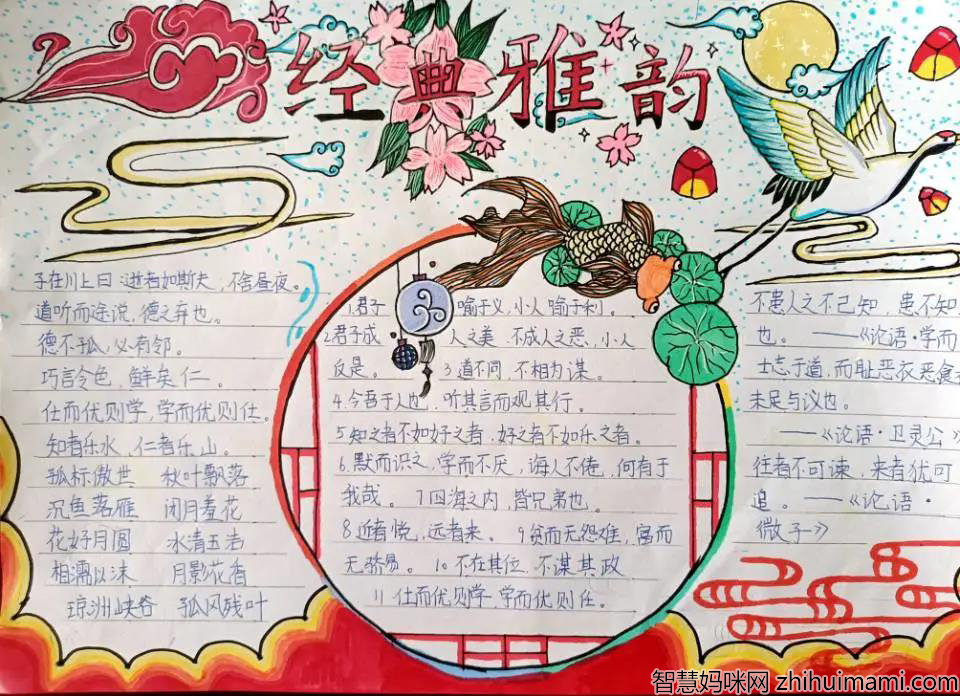 经典雅韵
子在川上曰:逝者如斯夫,不舍昼夜。
道听而途说,德之弃也。
德不孤,必有邻。
巧言令色,鲜矣仁。
仕而优则学,学而优则仕。
知者乐水,仁者乐山。
孤标傲世 秋叶飘落
沉鱼落雁 闭月羞花
花好月圆 冰清玉洁
相濡以沫 月影花香
琼洲峡谷 孤风残叶
1.君子 喻于义,小人喻于利。
2君子成 人之美,不成人之恶,小人
反是。 3道不同,不相为谋。
4.今吾于人也,听其言而观其行。
5知之者不如好之者,好之者不如乐之者。
6.默而识之,学而不厌,诲人不倦,何有于
我哉。 7四海之内,皆兄弟也。
8近者悦,远者来。 9贫而无怨难,富而
无骄易。 10不在其位,不谋其政
11仕而优则学,学而优则仕。
不患人之不己知,患不知
也。 ——《论语·学而
士志于道,而耻恶衣恶食
未足与议也。
——《论语·卫灵公》
往者不可谏,来者犹可
追。 ——《论语·
微子》
智慧妈咪网 zhihuimami.com